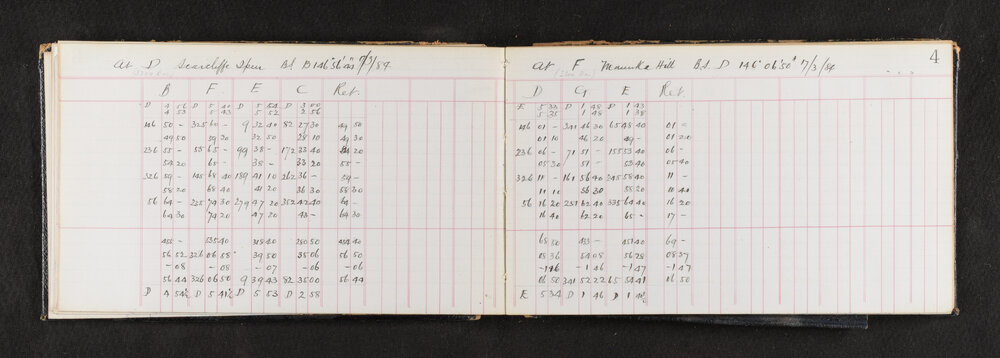 At D Scarcliffe Spur B.S. B 146° 56' /3/84
B F E C Ret.
D 4 56 D 5 40 D 5 54 D 3 00
4 53 5 43 5 52 2 56
146 50 – 325 60 – 9 32 40 82 27 30 49 50
49 50 59 20 32 50 28 10 49 30
236 55 – 55 65 – 99 38 – 172 33 40 54 20
54 20 65 – 38 – 33 20 55 –
326 59 – 145 68 40 189 41 10 262 36 – 59 –
58 20 68 40 41 20 36 30 58 30
56 64 – 235 74 30 279 47 20 352 42 40 64 –
64 30 74 20 47 20 43 – 64 30
455 – 535 40 318 40 280 50 454 40
56 52 326 06 58 39 50 35 06 56 50
– 08 – 08 – 07 – 06 – 06
56 44 326 06 50 9 39 43 82 35 00 56 44
D 4 54½ D 5 41½ D 5 53 D 2 58
At F Manuka Hill B.S. D 146° 06' 50" 7/3/84
4
D G E Ret
E 5 33 D 1 48 D 1 43
5 35 1 48 1 38
146 01 – 341 46 30 65 48 40 01 –
01 10 46 20 49 – 01 20
236 06 – 71 51 – 155 53 40 06 –
05 30 51 – 53 40 05 40
326 11 – 161 56 40 245 58 40 11 –
11 10 56 30 58 20 10 40
56 16 20 251 62 40 335 64 40 16 20
16 40 62 20 65 – 17 –
68 50 433 – 451 40 69 –
08 36 54 08 56 28 08 37
– 1 46 – 1 46 – 1 47 – 1 47
06 50 341 52 22 65 54 41 06 50
E 5 34 D 1 46 D 1 40½